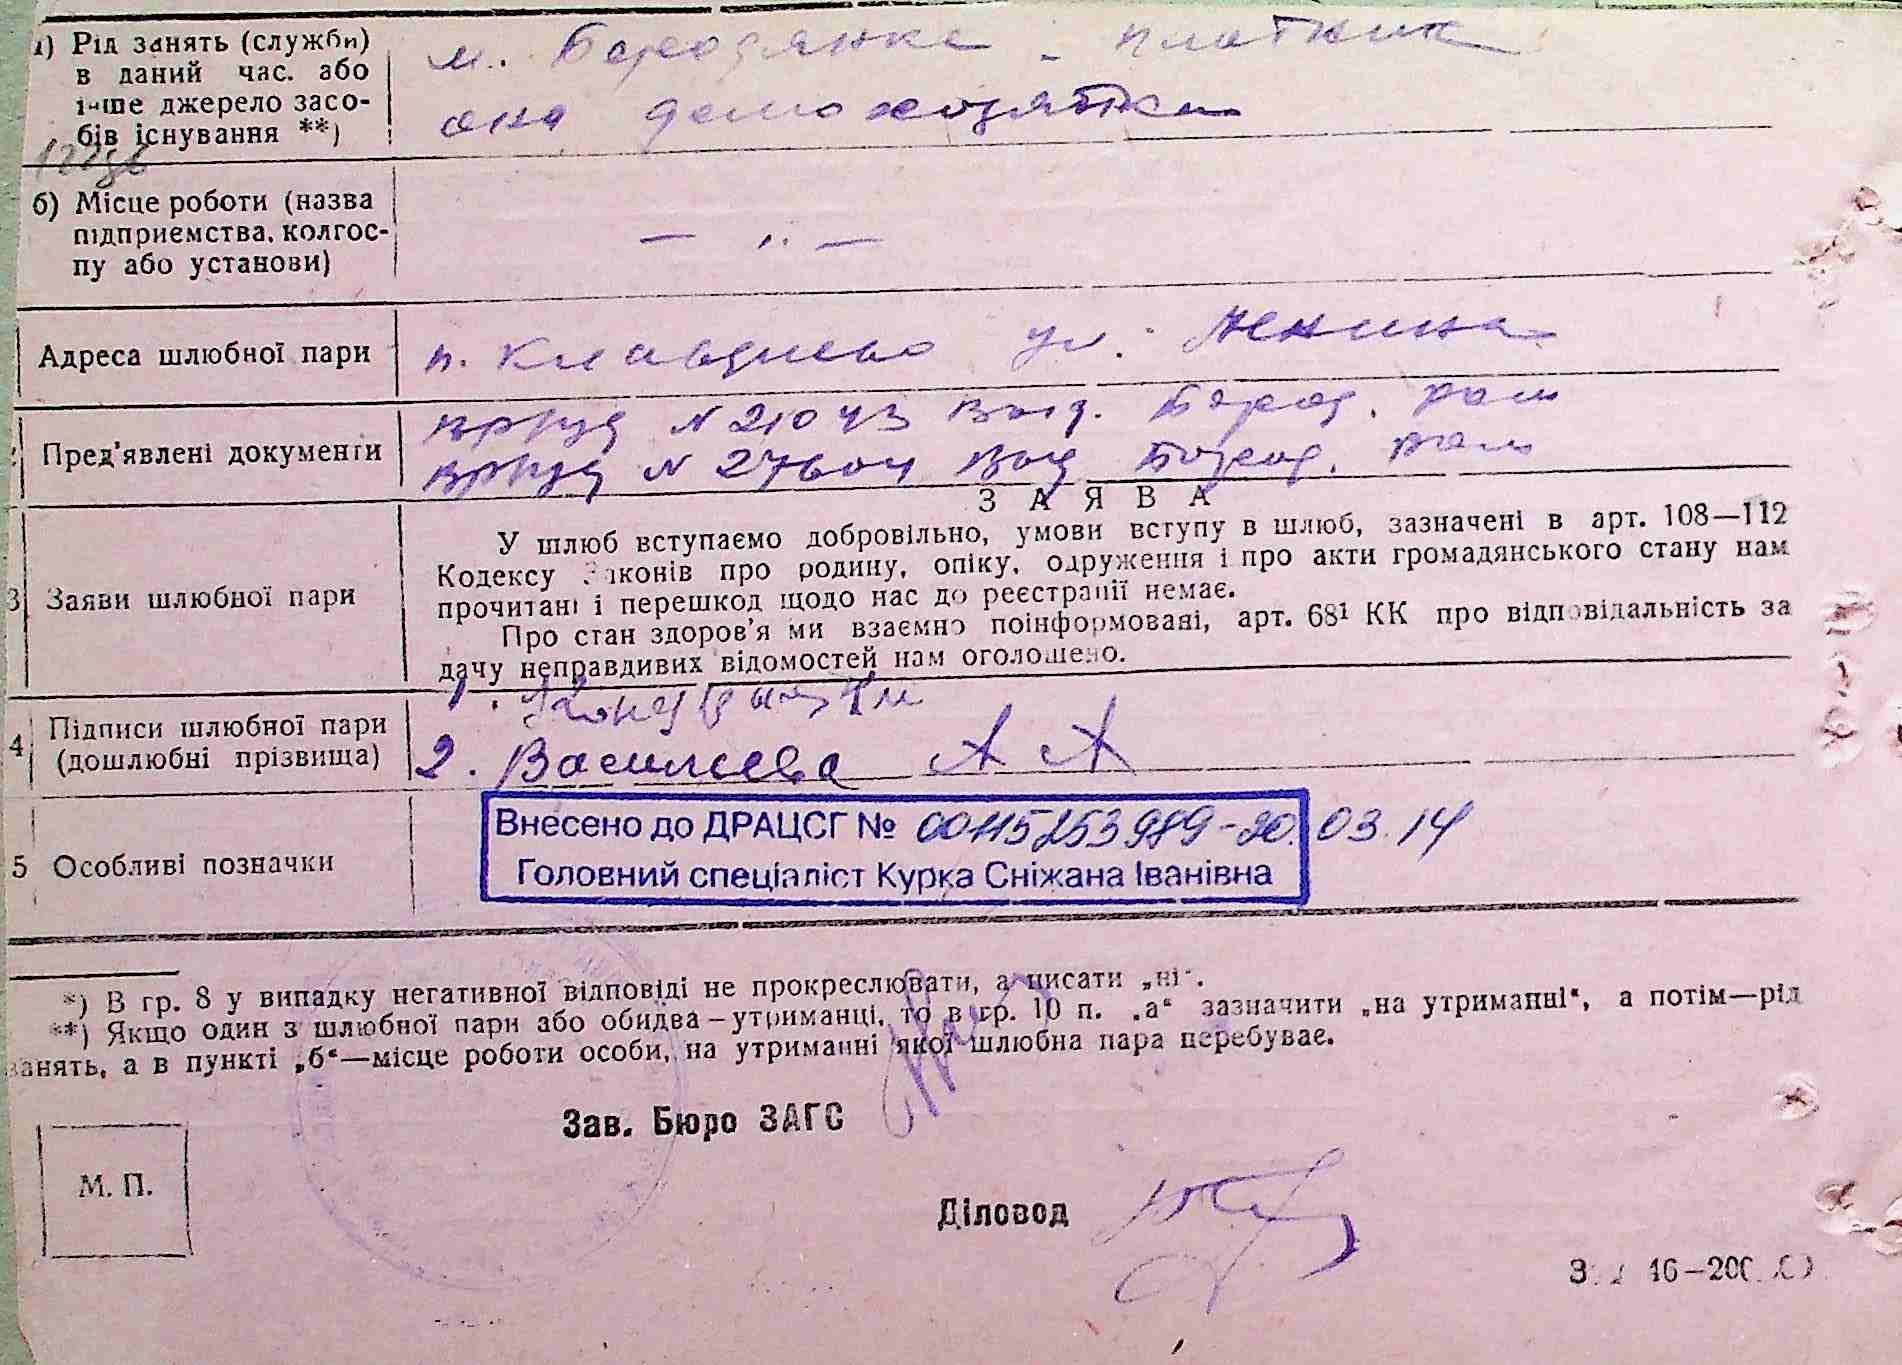 а) Рід занять (служби)
в даний час. або
інше джерело засо-
бів існування **)
м. Бородянка - платник
она домохозяйка
б) Місце роботи (назва
підприємства, колгос-
пу або установи)
— " —
Адреса шлюбної пари
п. Клавдиево ул. Ленина
Пред'явлені документи
N 21043 Выд. Бород. рай
N 27604 Выд Бород. рай
З А Я В А
3 Заяви шлюбної пари
У шлюб вступаємо добровільно, умови вступу в шлюб, зазначені в арт. 108—112
Кодексу Законів про родину, опіку, одруження і про акти громадянського стану нам
прочитані і перешкод щодо нас до реєстрації немає.
Про стан здоров'я ми взаємно поінформовані, арт. 68¹ КК про відповідальність за
дачу неправдивих відомостей нам оголошено.
4 Підписи шлюбної пари
(дошлюбні прізвища)
1.
2. Васильева А А
5 Особливі позначки
Внесено до ДРАЦСГ № 00115253989-20.03.14
Головний спеціаліст Курка Сніжана Іванівна
*) В гр. 8 у випадку негативної відповіді не прокреслювати, а писати „ні“.
**) Якщо один з шлюбної пари або обидва—утриманці, то в гр. 10 п. „а“ зазначити „на утриманні“, а потім—рід
занять, а в пункті „б“—місце роботи особи, на утриманні якої шлюбна пара перебуває.
Зав. Бюро ЗАГС
М. П.
Діловод